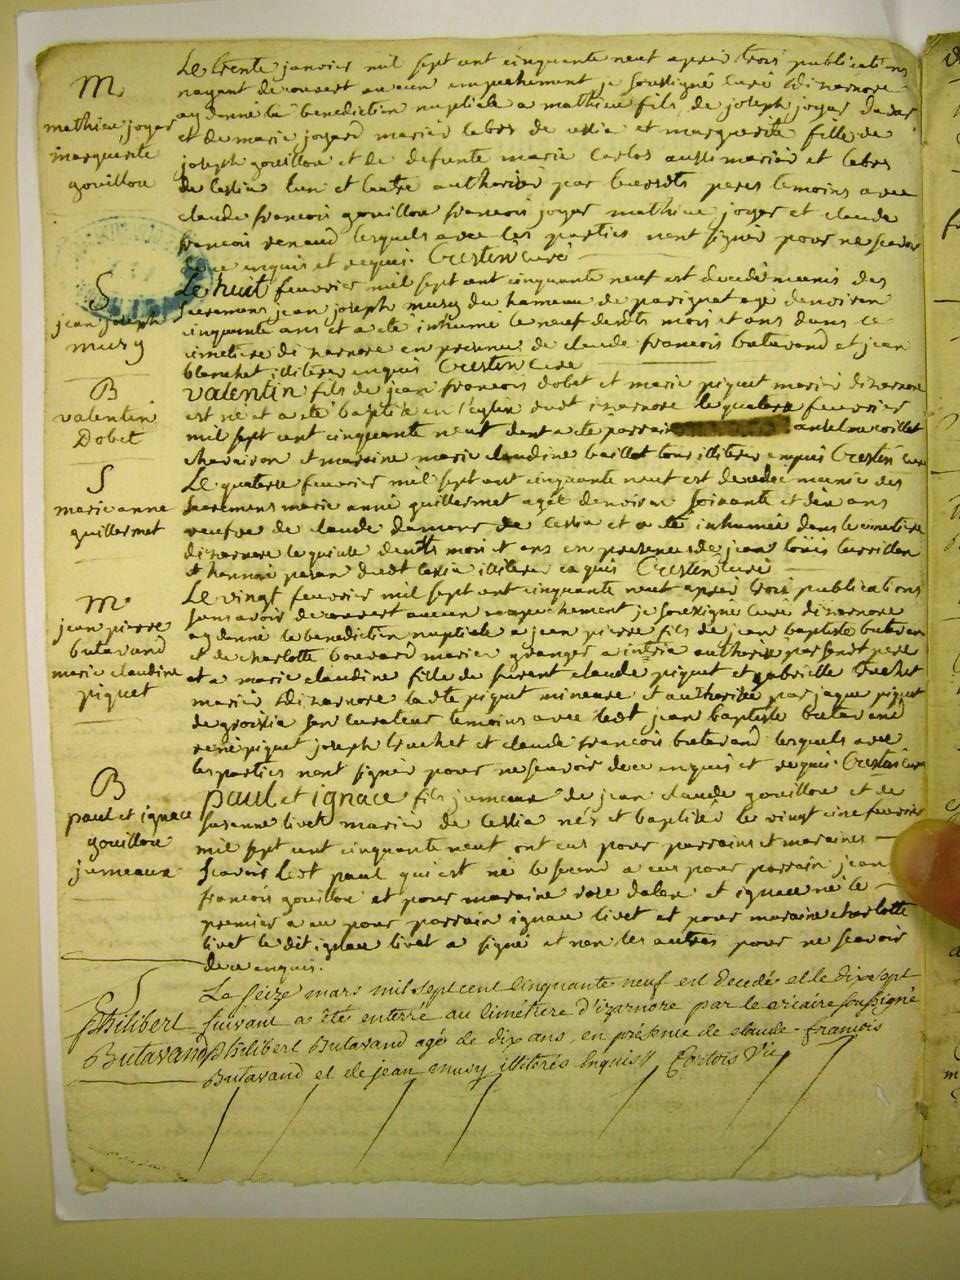 M
mathieu joyar
marguerite
gouillou
Le trente janvier mil sept cent cinquante neuf apres trois publications
nayant decouvert aucun empechement je soussigné curé dizarnore
ay donné la benediction nuptiale a mathieu fils de joseph joyar
et de marie joyard mariés labrs de cessia et marguerite fille de
joseph gouillou et de defunte marie Carlos aussi mariés et labrs
de Cessia lun et lautre authorisés par leursdts peres temoins avec
claude francois gouillou francois joyar mathieu joyar et claude
francois renaud lesquels avec les parties nont signés pour ne scavoir
de ce enquis et requis. Crestin Curé
S
jean joseph
musy
Le huit feuvrier mil sept cent cinquante neuf est decedé munis des
sacremens jean joseph musy du hameau de perignat agé denviron
cinquante ans et a eté inhumé le neuf desdts mois et ans dans le
cimetiere dizarnore en presence de claude francois butavand et jean
blanchet illiteres enquis Crestin Curé
B
valentin
Dobet
valentin fils de jean francois dobet et marie piquet mariés dizarnore
est né et a eté baptisé en l'eglise dudt izarnore le quatorze feuvrier
mil sept cent cinquante neuf dont a eté parrain anselme
et maraine marie claudine baillat tous illiteres enquis Crestin Curé
S
marie anne
guillermet
Le quatorze feuvrier mil sept cent cinquante neuf est decedée munie des
sacremens marie anne guillermet agée denviron soixante et dix ans
veufve de claude de Cessia et a eté inhumée dans le cimetiere
dizarnore le quinze desdts mois et ans en presence de jean louis
et dudt Cessia illiteres enquis Crestin Curé
M
jean pierre
butavand
marie claudine
piquet
Le vingt feuvrier mil sept cent cinquante neuf apres trois publications
sans avoir decouvert aucun empechement je soussigné curé dizarnore
ay donné la benediction nuptiale a jean pierre fils de jean baptiste butavand
et de charlotte bouvard mariés granger a authorisé par sondt pere
et a marie claudine fille de furent claude piquet et gabrielle truchet
mariés dizarnore ladte piquet mineure et authorisée par jaque piquet
de groissia son curateur temoins avec ledt jean baptiste butavand
rené piquet joseph truchet et claude francois butavand lesquels avec
les parties nont signés pour ne scavoir de ce enquis et requis. Crestin Curé
B
paul et ignace
gouillou
jumeaux
paul et ignace fils jumeaux de jean claude gouillou et de
susanne livet mariés de Cessia nés et baptisés le vingt cinc feuvrier
mil sept cent cinquante neuf ont eus pour parrains et maraines
scavoir ledt paul qui est né le second a eus pour parrain jean
francois gouillou et pour maraine rose et ignace né le
premier a eu pour parrain ignace livet et pour maraine charlotte
livet le dit ignace livet a signé et non les autres pour ne scavoir
de ce enquis.
S
Philibert
Butavand
Le seize mars mil sept cent cinquante neuf est decedé et le dixsept
suivant a été enterré au cimétiere d'izarnore par le vicaire soussigné
philibert Butavand agé de dix ans, en présence de claude-francois
Butavand et de jean musy illitérés Enquis Cortois Vic